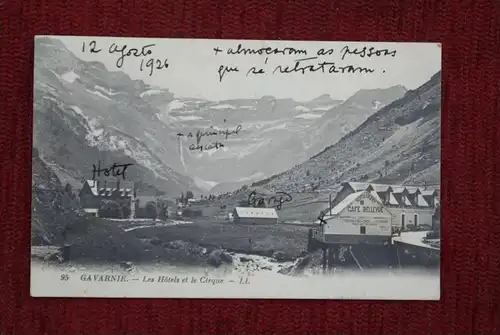 12 Agosto
1926
+ almoçaram as pessoas
que se retrataram.
+ a principal
Hotel
+
CAFE BELLEVUE
95 GAVARNIE. — Les Hôtels et le Cirque — LL